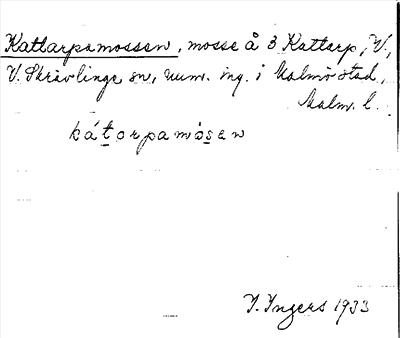 Kattarpamossen, mosse å 3 Kattarp, V.,
V. Skrävlinge sn, num. ing. i Malmö stad,
Malm. l.
kátorpamòsen
I. Ingers 1933